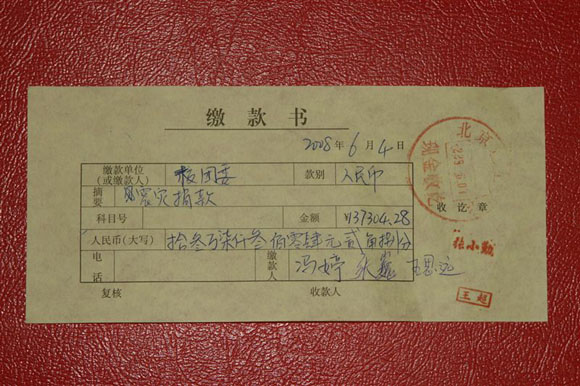 缴款书
2008年6月4日
缴款单位(或缴款人) 校团委 款别 人民币
摘要 震灾捐款
科目号 金额 ¥137304.28
人民币(大写) 拾叁万柒仟叁佰零肆元贰角捌分
电话 缴款人 冯婷
复核 收款人
北京
现金收讫
收讫章
王超